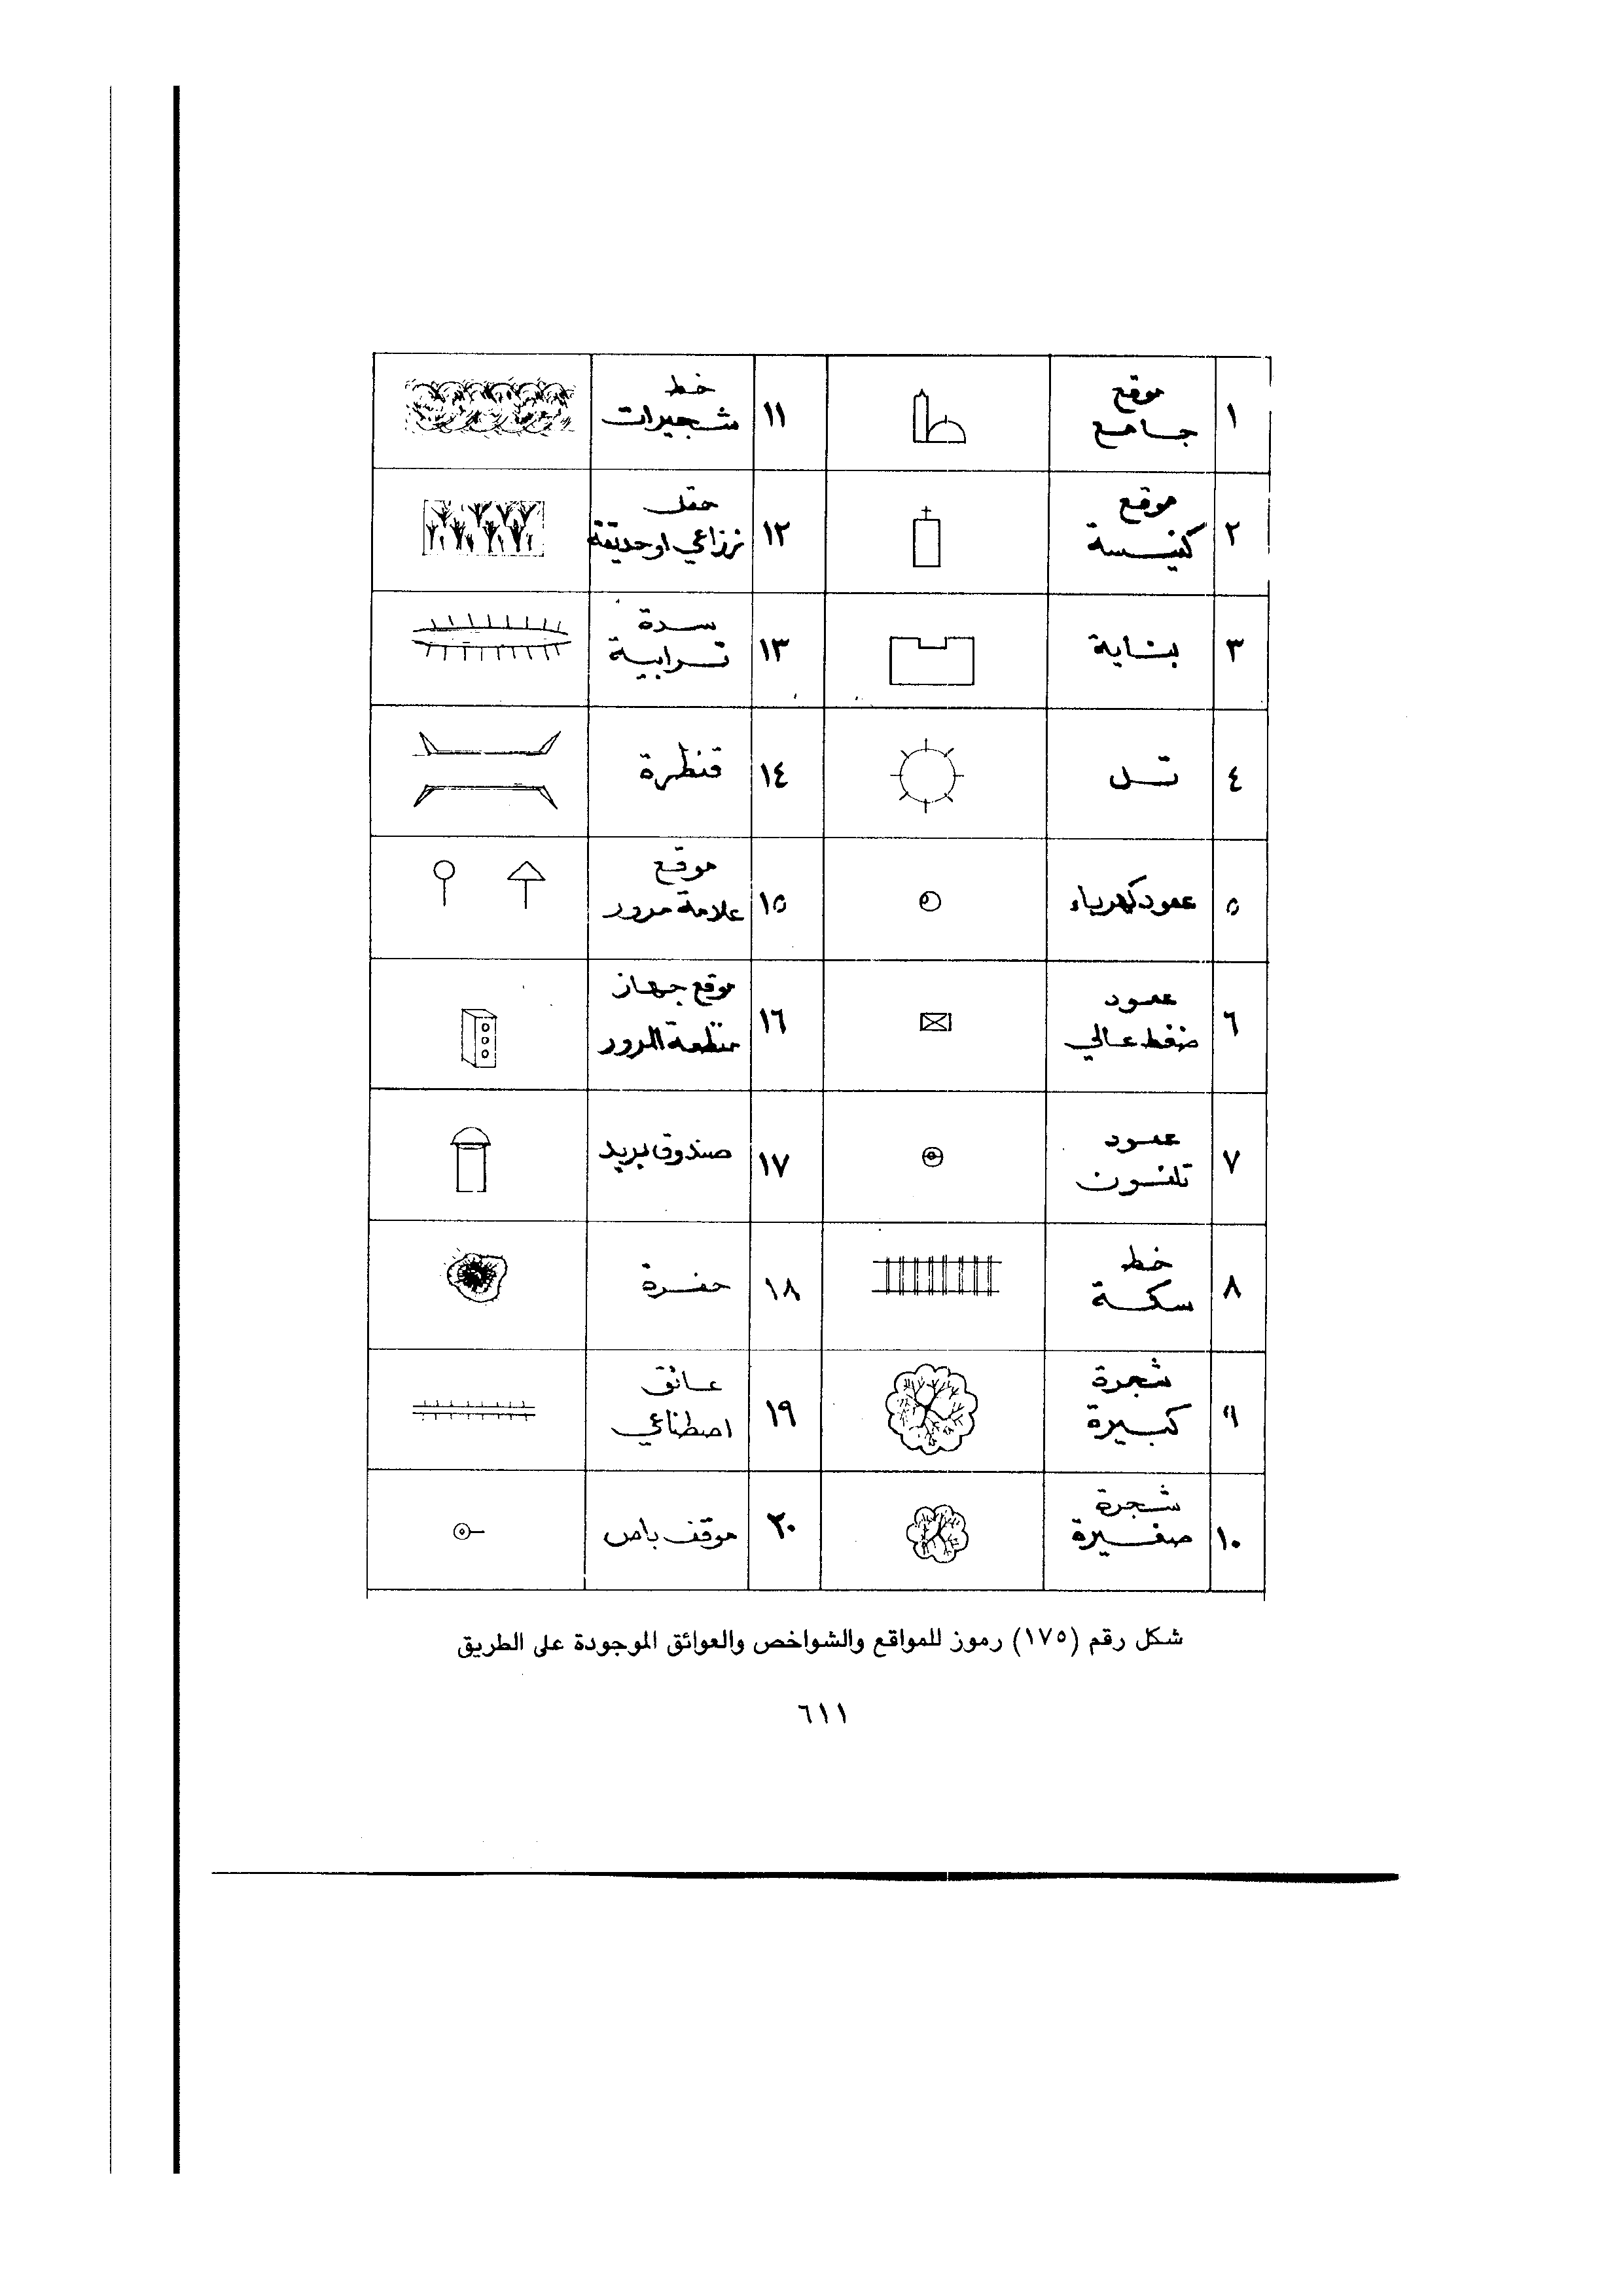 ١ موقع جامع
١١ خط شجيرات
٢ موقع كنيسة
١٢ حقل زراعي او حديقة
٣ بناية
١٣ سدة ترابية
٤ تل
١٤ قنطرة
٥ عمود كهرباء
١٥ موقع علامة مرور
٦ عمود ضغط عالي
١٦ موقع جهاز منظمة المرور
٧ عمود تلفون
١٧ صندوق بريد
٨ خط سكة
١٨ حفرة
٩ شجرة كبيرة
١٩ عائق اصطناعي
١٠ شجرة صغيرة
٢٠ موقف باص
شكل رقم (١٧٥) رموز للمواقع والشواخص والعوائق الموجودة على الطريق
٦١١